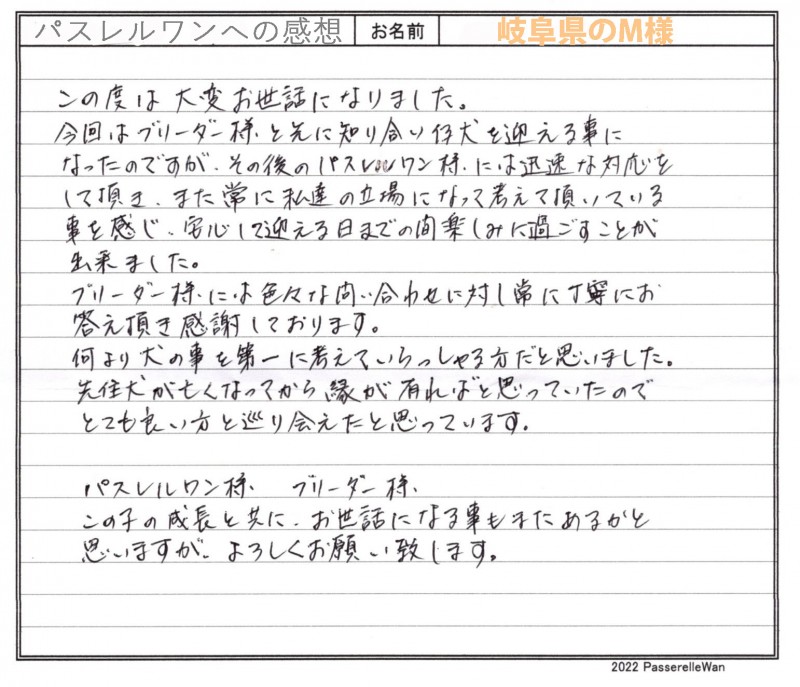 パスレルワンへの感想 お名前 岐阜県のM様
この度は大変お世話になりました。
今回はブリーダー様と先に知り合い仔犬を迎える事に
なったのですが、その後のパスレルワン様には迅速な対応を
して頂き、また常に私達の立場になって考えて頂いている
事を感じ、安心して迎える日までの間楽しみに過ごすことが
出来ました。
ブリーダー様には色々な問い合わせに対し常に丁寧にお
答え頂き感謝しております。
何より犬の事を第一に考えていらっしゃる方だと思いました。
先住犬が亡くなってから縁が有ればと思っていたので
とても良い方と巡り会えたと思っています。
パスレルワン様 ブリーダー様
この子の成長と共に、お世話になる事もまたあるかと
思いますが、よろしくお願い致します。
2022 PasserelleWan